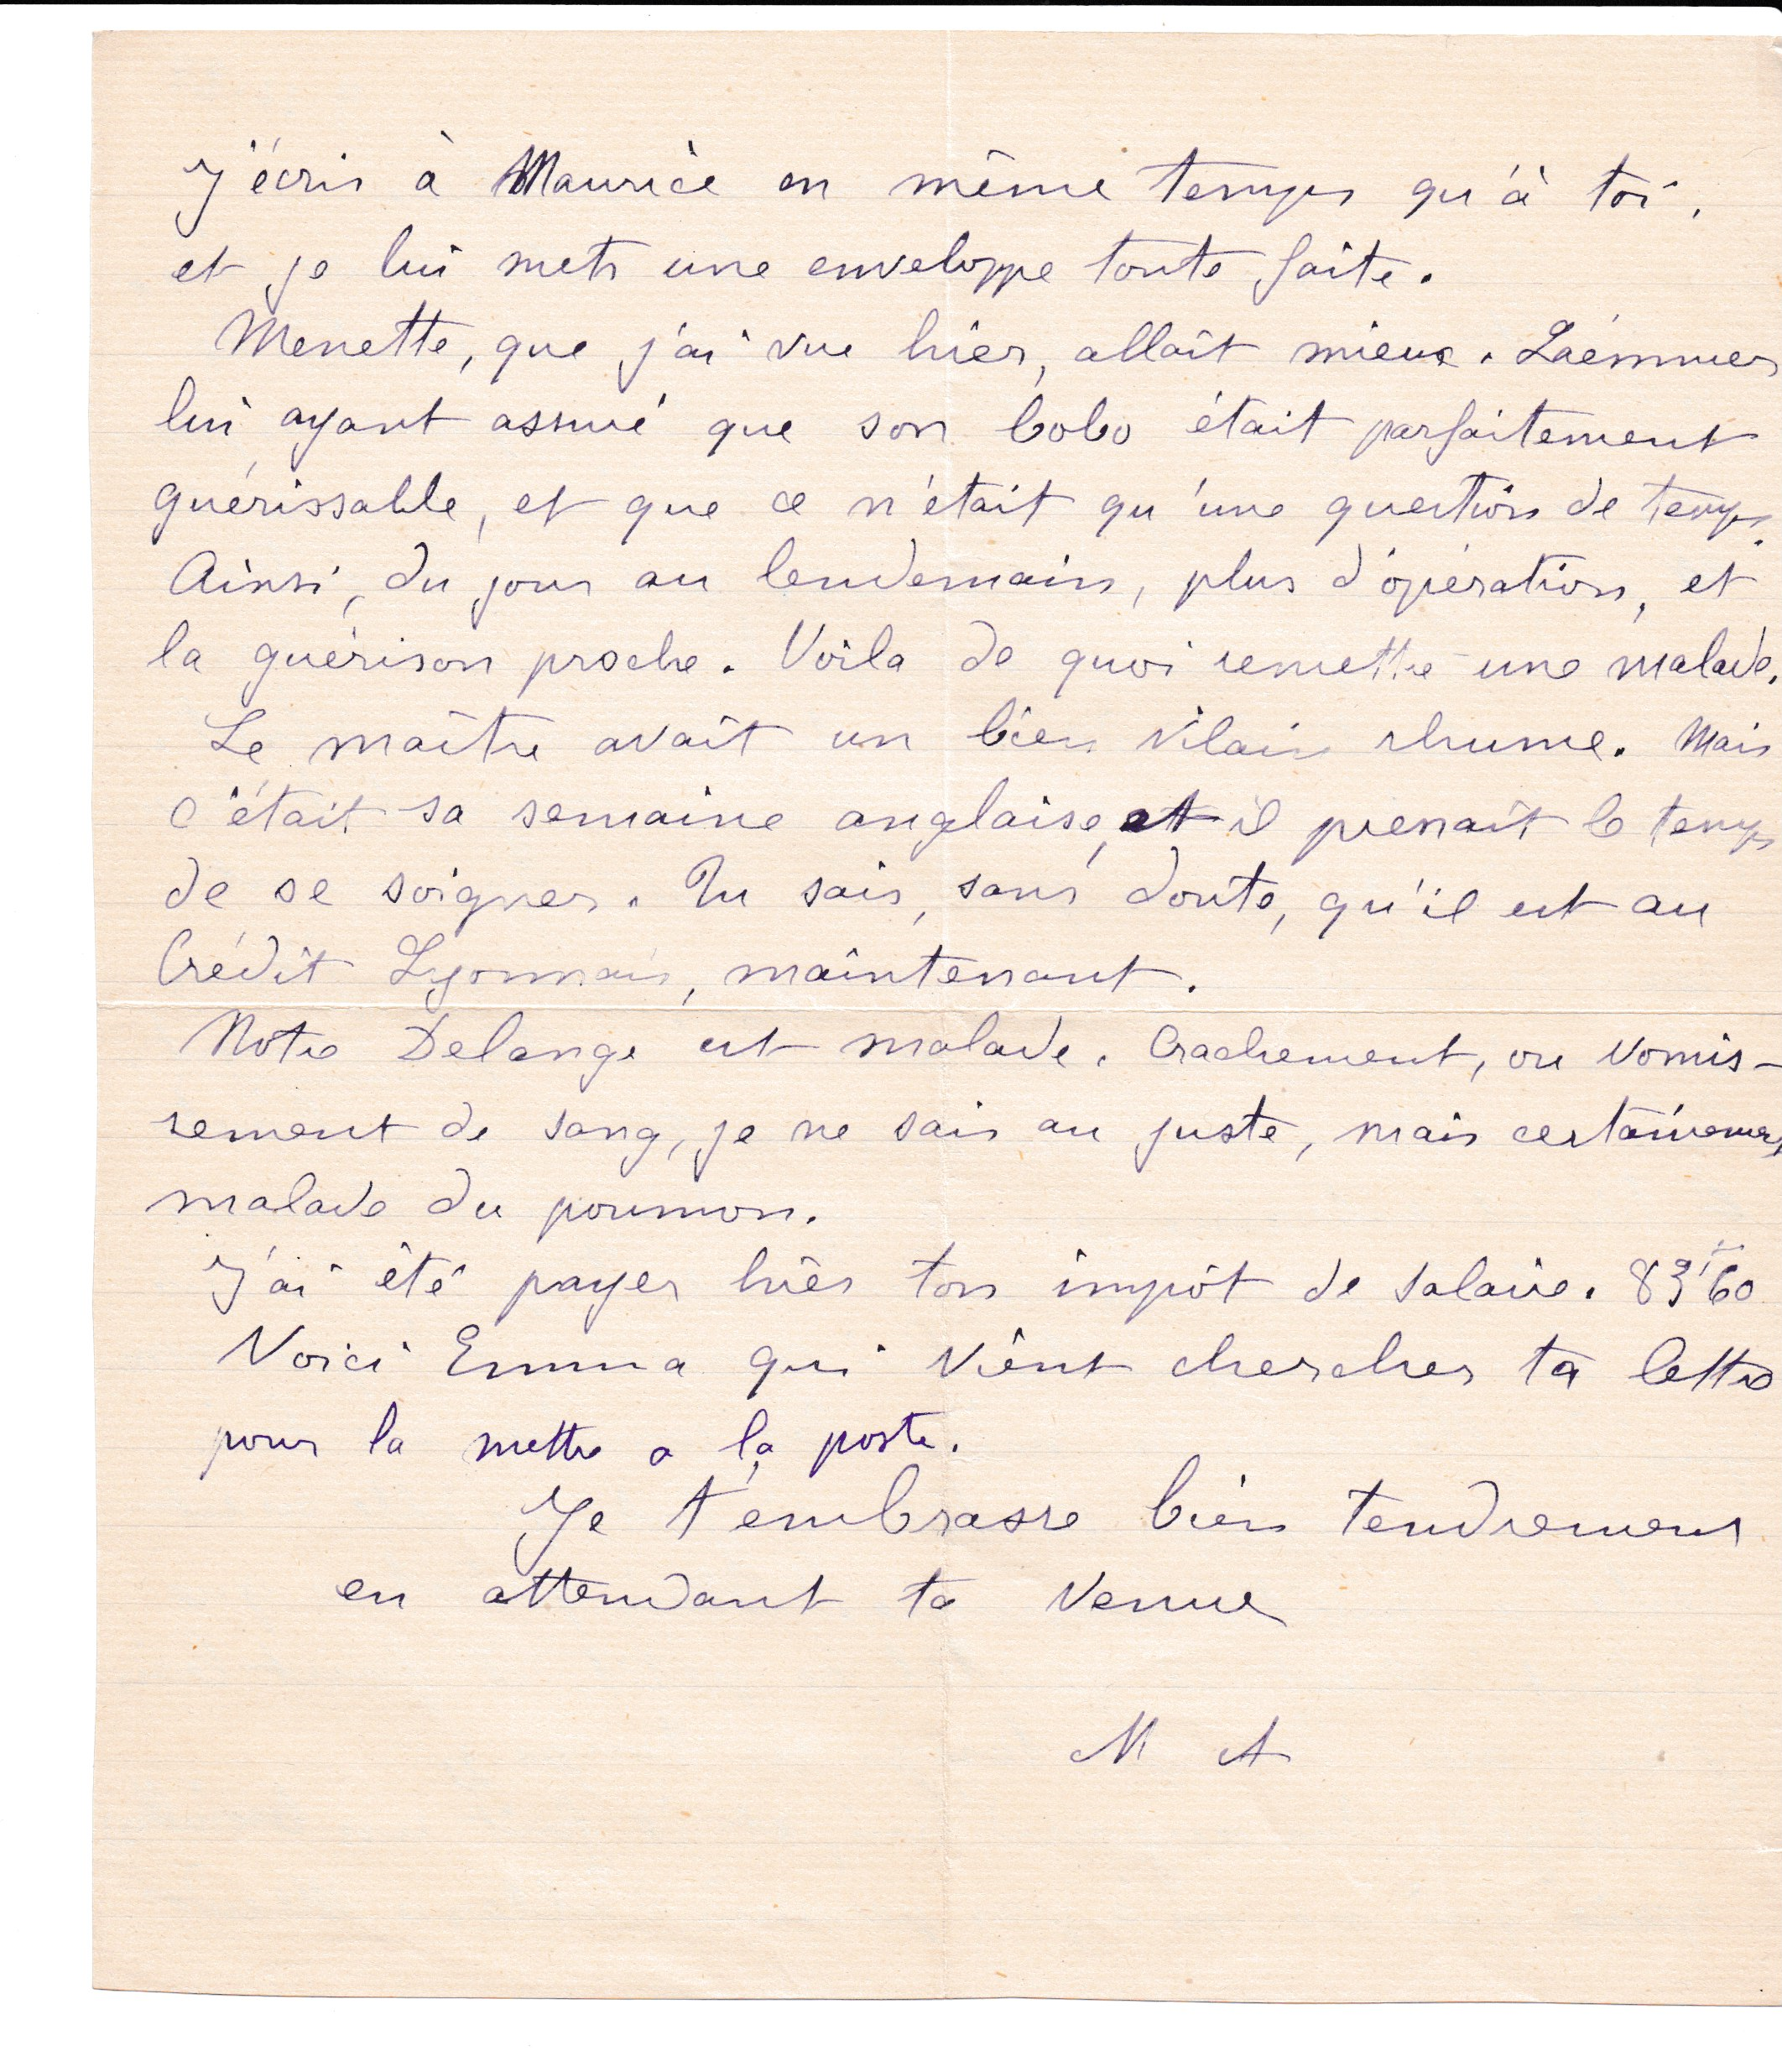 J'écris à Maurice en même temps qu'à toi,
et je lui mets une enveloppe toute faite.
Menette, que j'ai vue hier, allait mieux.
lui ayant assuré que son bobo était parfaitement
guérissable, et que ce n'était qu'une question de temps.
Ainsi, du jour au lendemain, plus d'opération, et
la guérison proche. Voila de quoi remettre une malade.
Le maître avait un bien vilain rhume. Mais
c'était sa semaine anglaise, et il prenait le temps
de se soigner. Tu sais, sans doute, qu'il est au
Crédit Lyonnais, maintenant.
Notre Delange est malade. Crachement, ou vomis-
sement de sang, je ne sais au juste, mais certainement
malade du poumon.
J'ai été payer hier ton impôt de salaire. 83f60
Voici Emma qui vient chercher ta lettre
pour la mettre a la poste.
Je t'embrasse bien tendrement
en attendant ta venue
M A